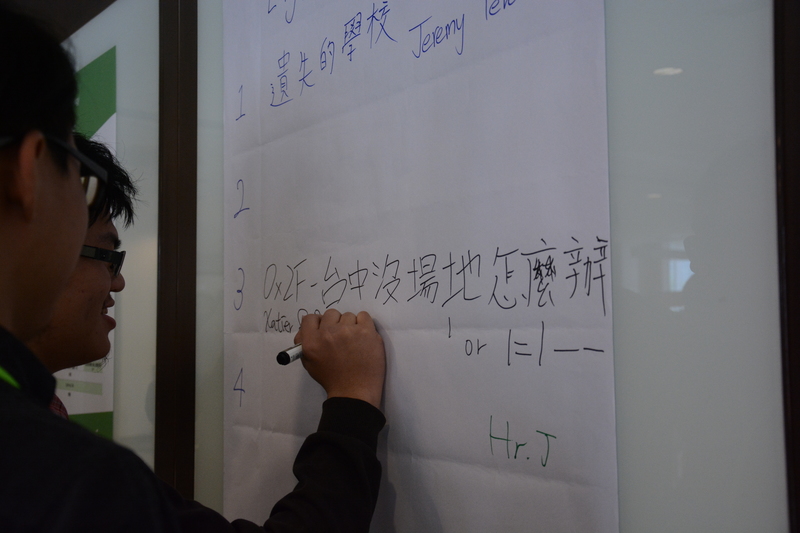 1 遺失的學校 Jeremy
2
3 0x2F-台中沒場地怎麼辦
' or 1=1--
4
Hr.J